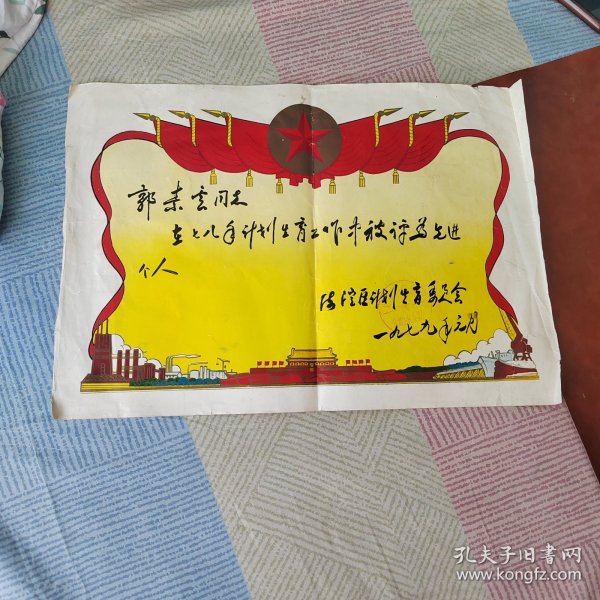 郭素云同志
在七八年计划生育工作中被评为先进
个人
海淀区计划生育委员会
一九七九年元月
孔夫子旧书网
www.kongfz.com